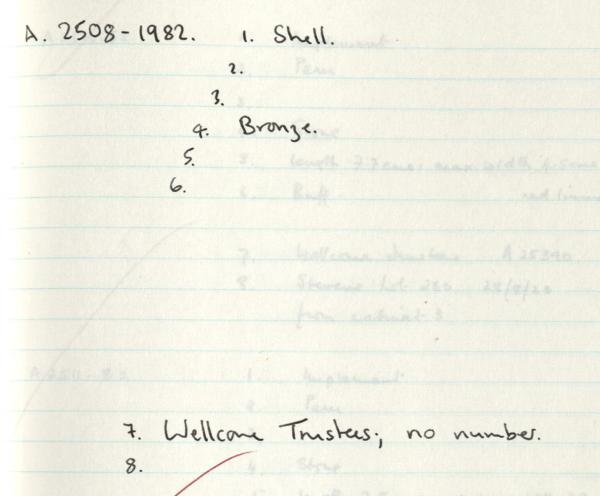 A. 2508-1982. 1. Shell.
2.
3.
4. Bronze.
5.
6.
7. Wellcome Trustees; no number.
8.